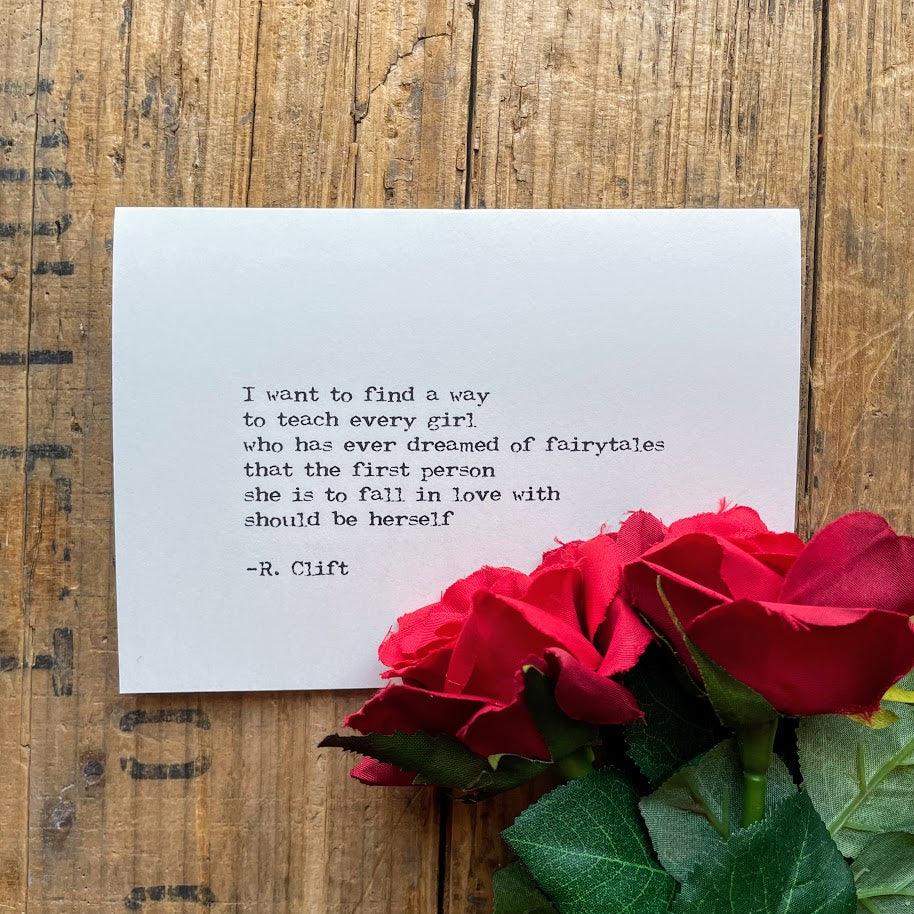 I want to find a way
to teach every girl
who has ever dreamed of fairytales
that the first person
she is to fall in love with
should be herself
-R. Clift